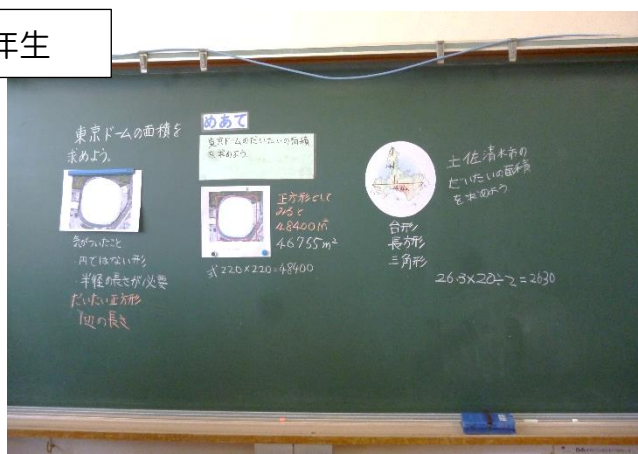 年生
東京ドームの面積を
求めよう。
気がついたこと
・円ではない形
・半径の長さが必要
だいたい正方形
1辺の長さ
めあて
東京ドームのだいたいの面積
を求めよう。
正方形として
みると
48400m²
46755m²
式220×220=48400
土佐清水市の
だいたいの面積
を求めよう
台形
長方形
三角形
26.3×20÷2=2630